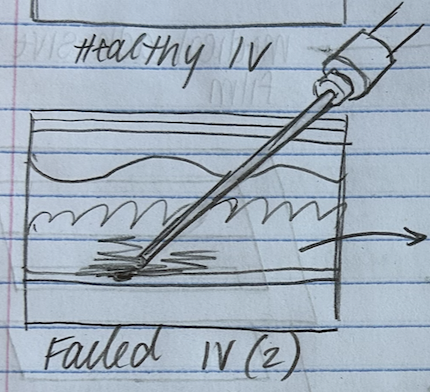 Healthy IV
Failed IV (2)